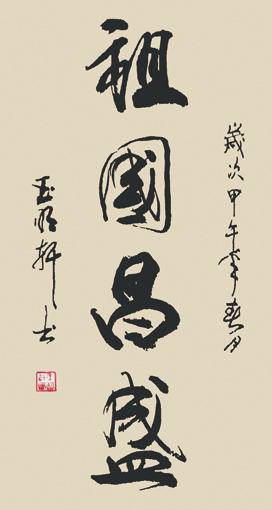 歲次甲午年春月
祖國昌盛
玉明軒主